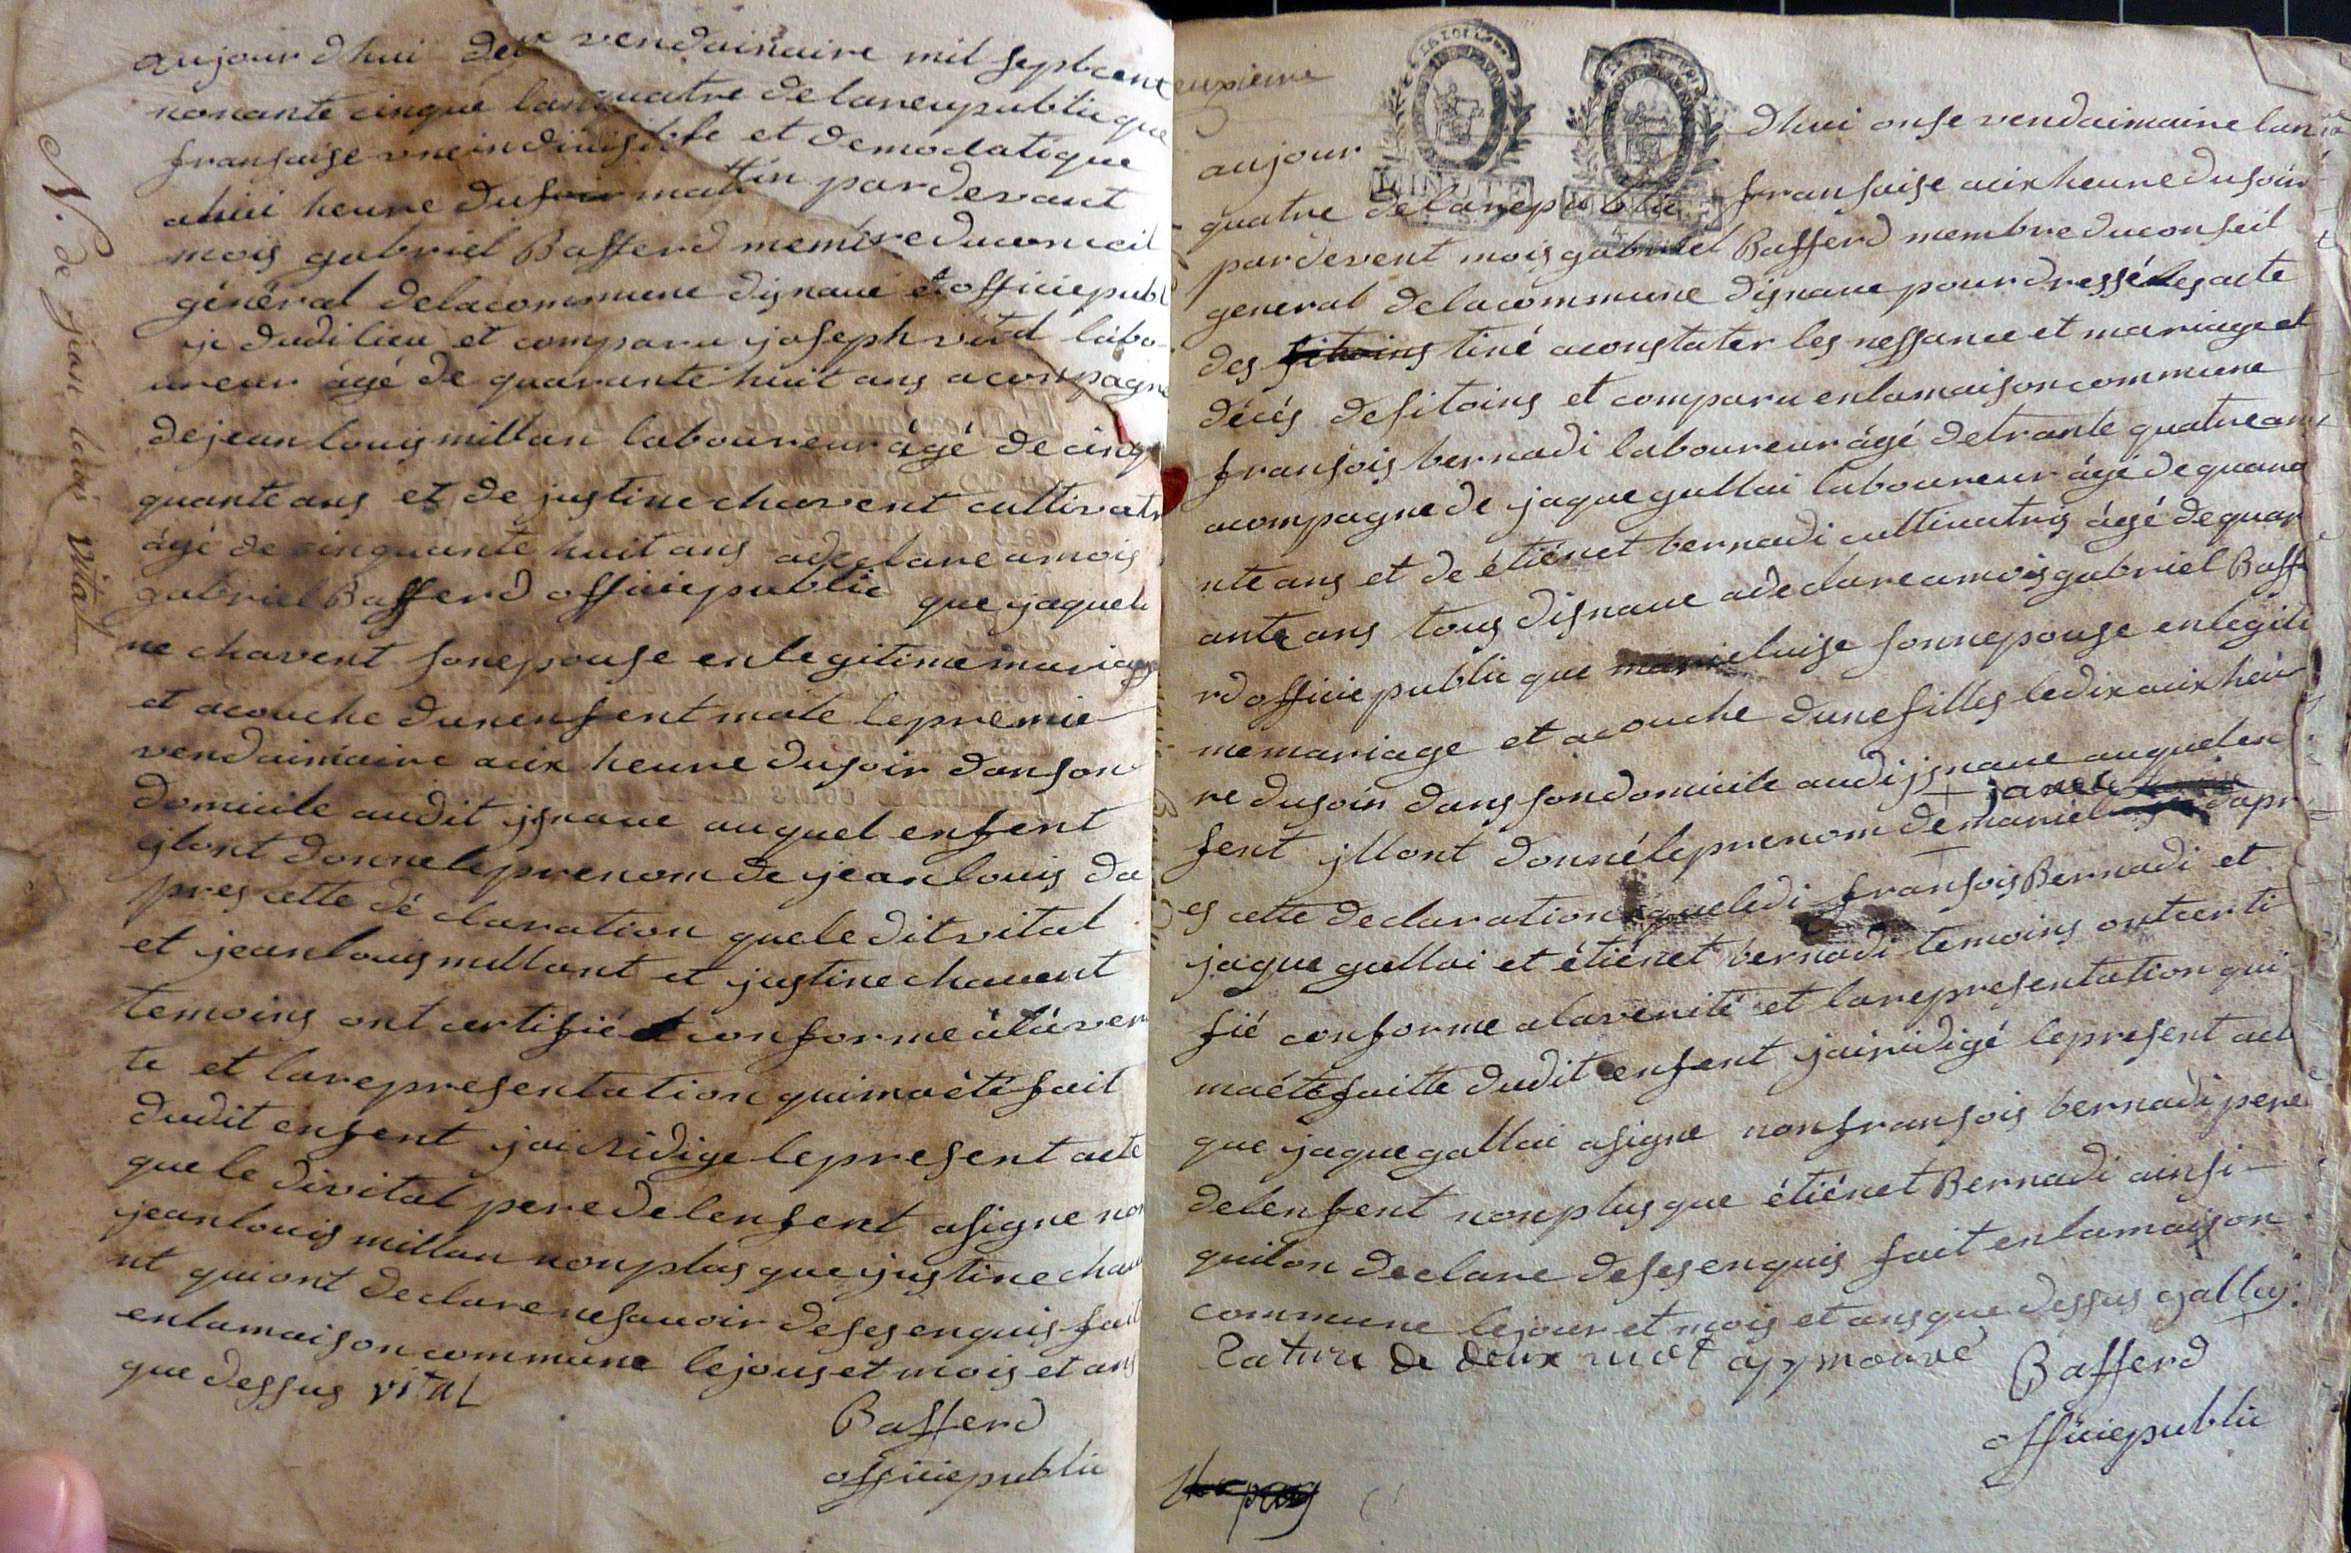 N. de jean louis vital
aujour dhui deux vendaimaire mil septcent
nonante cinque lan quatre de larepublique
fransaise vneindiuisible et democlatique
ahui heure dusoir mattin pardevant
mois gabriel Bafferd membre duconceil
général delacommune disnaue et officiepubl
ic dudilieu et comparu joseph vital labo
ureur âgé de quarante huit ans acompagne
dejean louis millan laboureur âgé de cinq
quante ans et de justine chavent cultivatr
âgé de cinquante huit ans adeclare amois
gabriel Bafferd officiepublic que jaqueli
ne chavent sonepouse enlegitime mariage
et acouche dunenfent male lepremie
vendaimiaire aux heure dusoir danson
domicile audit jsnaue auquel enfent
jlont donneleprenom de jeanlouis da
pres cette déclaration queledit vital
et jeanlouis millant et justine chauent
temoins ont certifié et conforme àlàver
te et larepresentation quimaétéfait
dudit enfent jairidige lepresent acte
que le divital pere delenfent asigne non
jeanlouis millan nonplus que justine chau
nt quiont declare nesauoir desesenquis fait
enlamaison commune lejour et mois et ans
que dessus vital
Bafferd
officiepublic
euxieme
MINUTE
aujour dhui onse vendaimaire lan
quatre delarepublic fransaise aux heure dusoir
pardevent mois gabriel Bafferd membre duconseil
general delacommune disnaue pourdressé les acte
des sitoins tiné aconstater les nessance et mariage et
décés desitoins et comparu enlamaison commune
fransois bernadi laboureur âgé detrante quatre ans
acompagne de jaque gallai laboureur âgé de quara
nte ans et de étiénet bernadi cultiuatris âgé de quar
ante ans tous disnaue adeclare amois gabriel Baffe
rd officiepublic que marieluise sonnepouse enlegiti
memariage et acouche dunefilles ledix aux heu
re dusoir dans sondomicile audijsnaue auquelen
fent jllont donnéleprenom de marie dapr
es cette declaration queledi fransois Bernadi et
jaque gallai et étiénet bernadi temoins ontcerti
fié conforme alaverité et larepresentation qui
maétéfaitte dudit enfent jairidigé lepresent act
que jaquegallai asigne nonfransois bernadi pere
delenfent nonplus que étiénet Bernadi ainsi
quilon declare desesenquis fait enlamaison
commune lejour et mois et ansque dessus gallay
Rature de deux mot approuvé
Bafferd
officiepublic